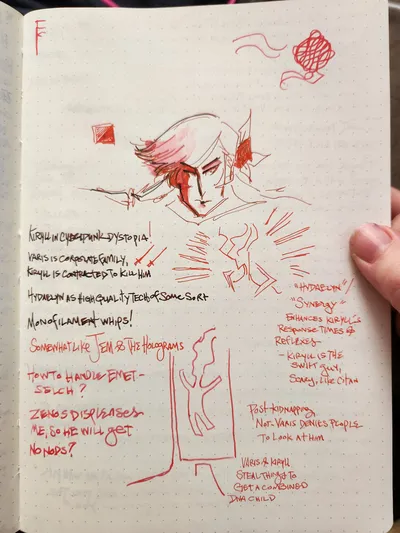 Kiryll in cyberpunk dystopia!
Varis is corporate family,
Kiryll is contracted to kill him
Hydaelyn as high quality tech of some sort
Monofilament whips!
Somewhat like Jem & the Holograms
How to handle Emet-
Selch?
Zenos displeases
me, so he will get
no nods?
"Hydaelyn"/
"Synergy"
Enhances Kiryll's
response times &
reflexes
- Kiryll is the
swift guy,
sorry, Like Citan
Post-kidnapping
Not-Varis denies people
to look at him
Varis & Kiryll
steal things to
get a combined
DNA child